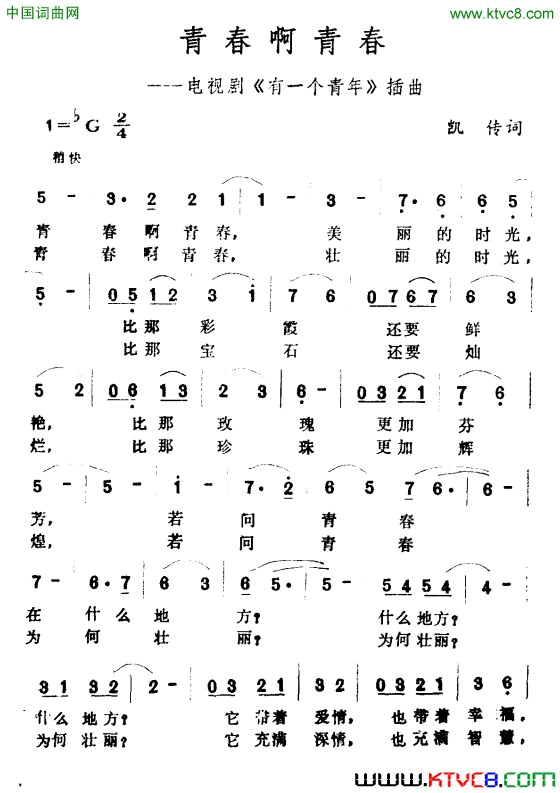 中国词曲网 www.ktvc8.com
青春啊青春
----电视剧《有一个青年》插曲
1=♭G 2/4 凯 传词
稍快
5 - | 3· 2 | 2 1 | 1 - | 3 - | 7· 6 | 6 5 |
青 春啊青春, 美 丽的时光,
青 春啊青春, 壮 丽的时光,
5 - | 05 12 | 3 1 | 7 6 | 07 67 | 6 3 |
比那彩霞还要鲜
比那宝石还要灿
5 2 | 06 13 | 2 3 | 6 - | 03 21 | 7 6 |
艳, 比那玫瑰更加芬
烂, 比那珍珠更加辉
5 - | 5 - | 1 - | 7· 2 | 6 5 | 7 6· | 6 - |
芳, 若问青春
煌, 若问青春
7 - | 6· 7 | 6 3 | 2 6 | 5· | 5 - | 54 54 | 4 - |
在什么地方? 什么地方?
为何壮丽? 为何壮丽?
31 32 | 2 - | 03 21 | 1 3 | 02 21 | 3 6 |
什么地方? 它带着爱情, 也带着幸福,
为何壮丽? 它充满深情, 也充满智慧,
www.KTVC8.com